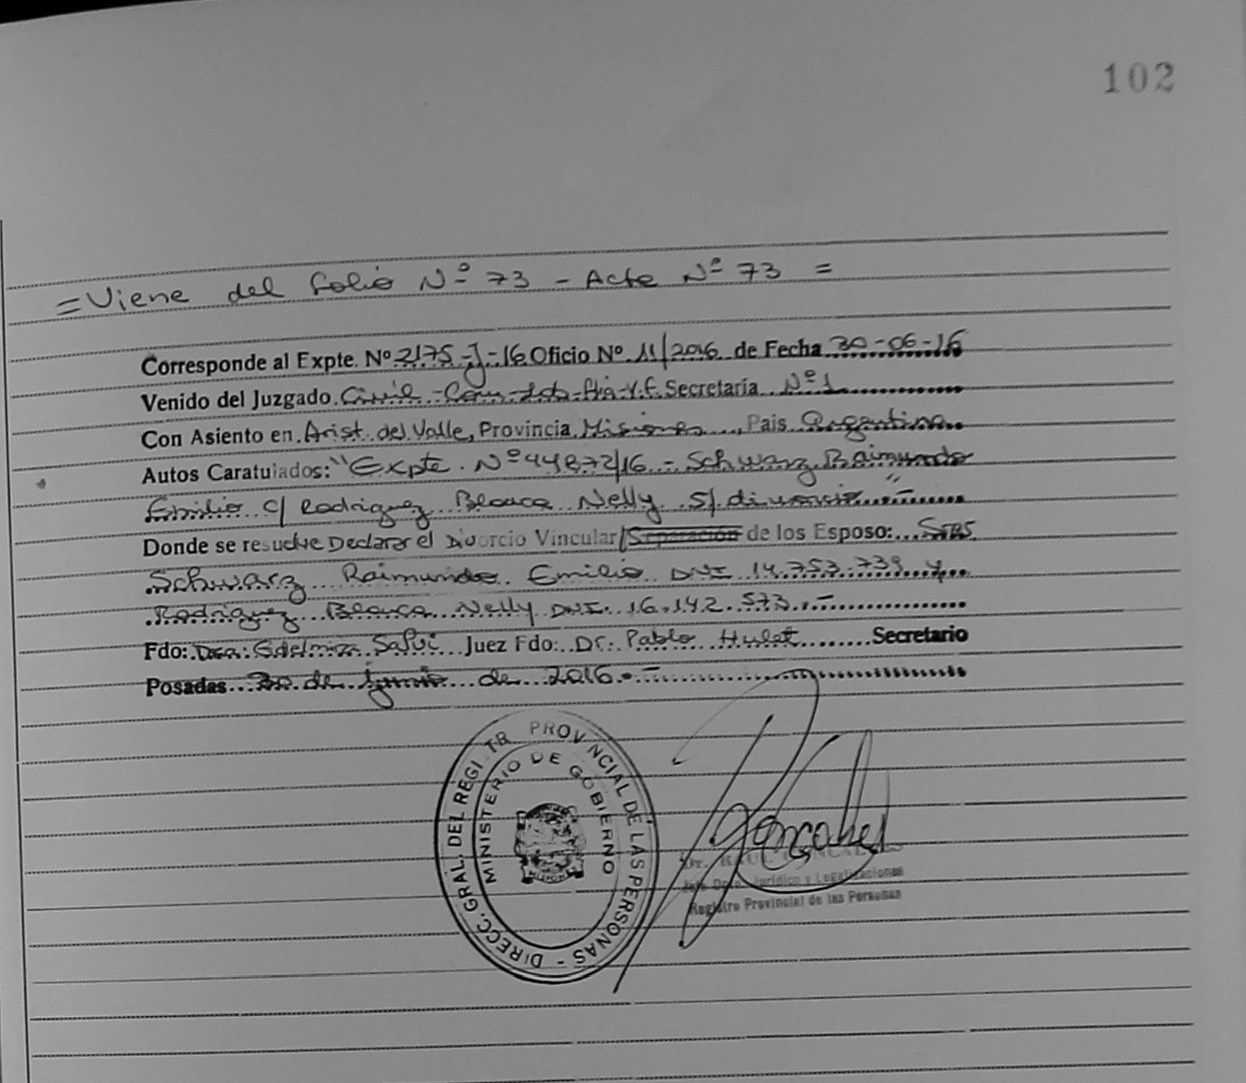 102
= Viene del folio Nº 73 - Acta Nº 73 =
Corresponde al Expte. Nº 2175-J-16 Oficio Nº 11/2016 de Fecha 30-06-16
Venido del Juzgado Civil - Com - Lab - Flia - V.F. Secretaría Nº 1
Con Asiento en Arist. del Valle, Provincia Misiones, País Argentina
Autos Caratulados: "Expte. Nº 44872/16 - Schwarz Raimundo
Emilio c/ Rodriguez Blanca Nelly s/ divorcio" -
Donde se resuelve Declarar el Divorcio Vincular/Separación de los Esposo: Sres
Schwarz Raimundo Emilio DNI 14.753.739 y
Rodriguez Blanca Nelly DNI. 16.142.573.-
Fdo: Dra: Edelmira Juez Fdo: Dr. Pablo Hulet Secretario
Posadas 30 de junio de 2016.-
DIRECC. GRAL. DEL REGISTR PROVINCIAL DE LAS PERSONAS -
MINISTERIO DE GOBIERNO
Dr. RAUL GONCALVES
Jefe Dpto. Jurídico y Legalizaciones
Registro Provincial de las Personas